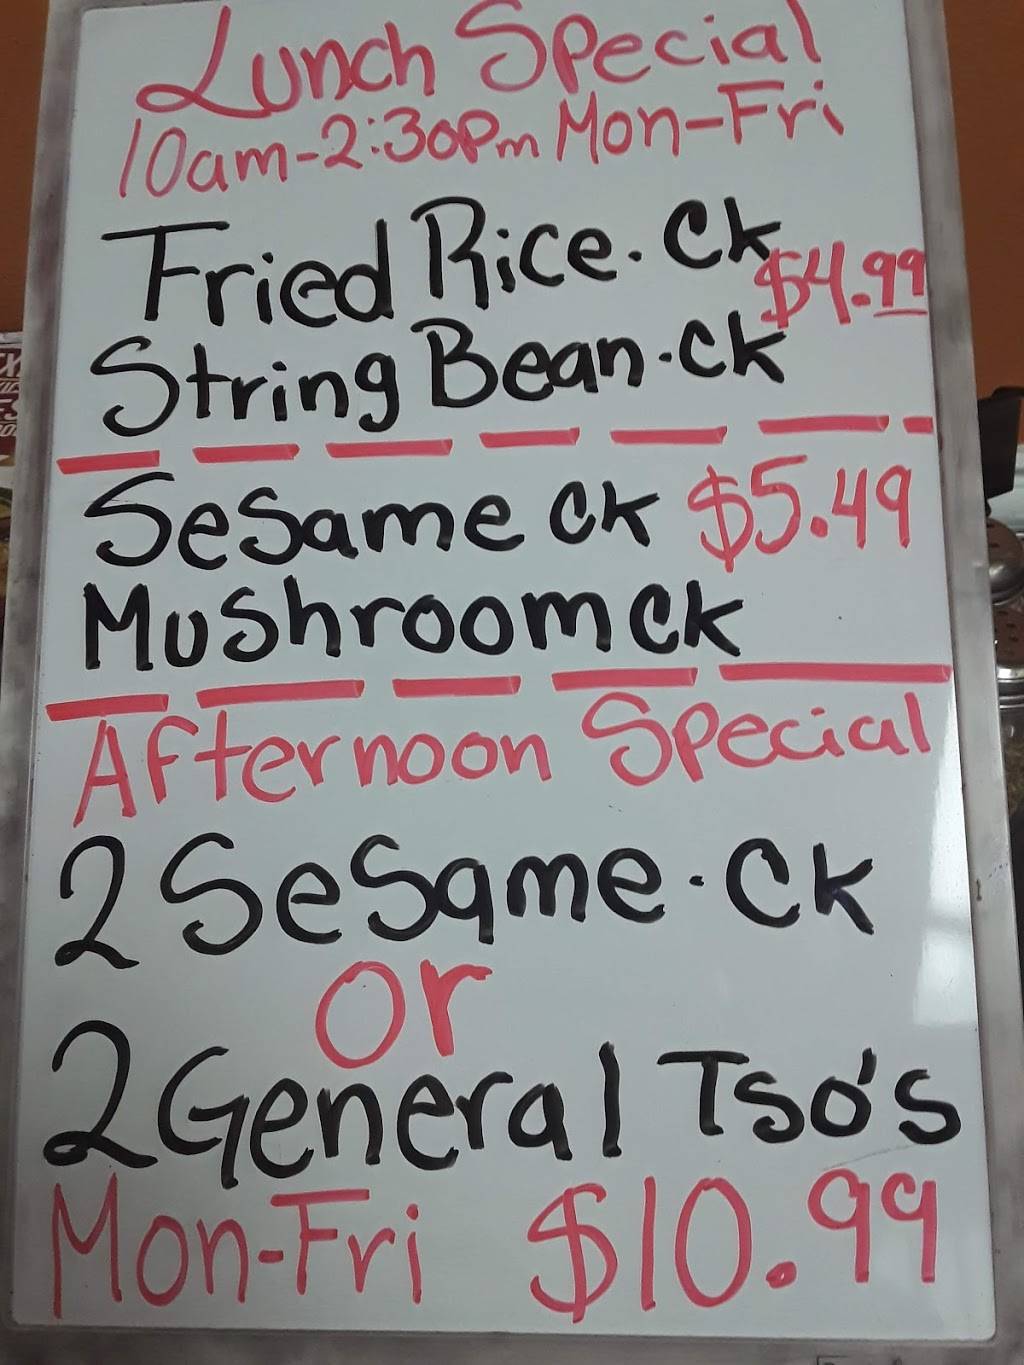 Lunch Special
10am-2:30Pm Mon-Fri
Fried Rice. CK
$4.99
String Bean.CK
Sesame CK $5.49
Mushroom CK
Afternoon Special
2 Sesame. CK
or
2 General Tso's
Mon-Fri $10.99